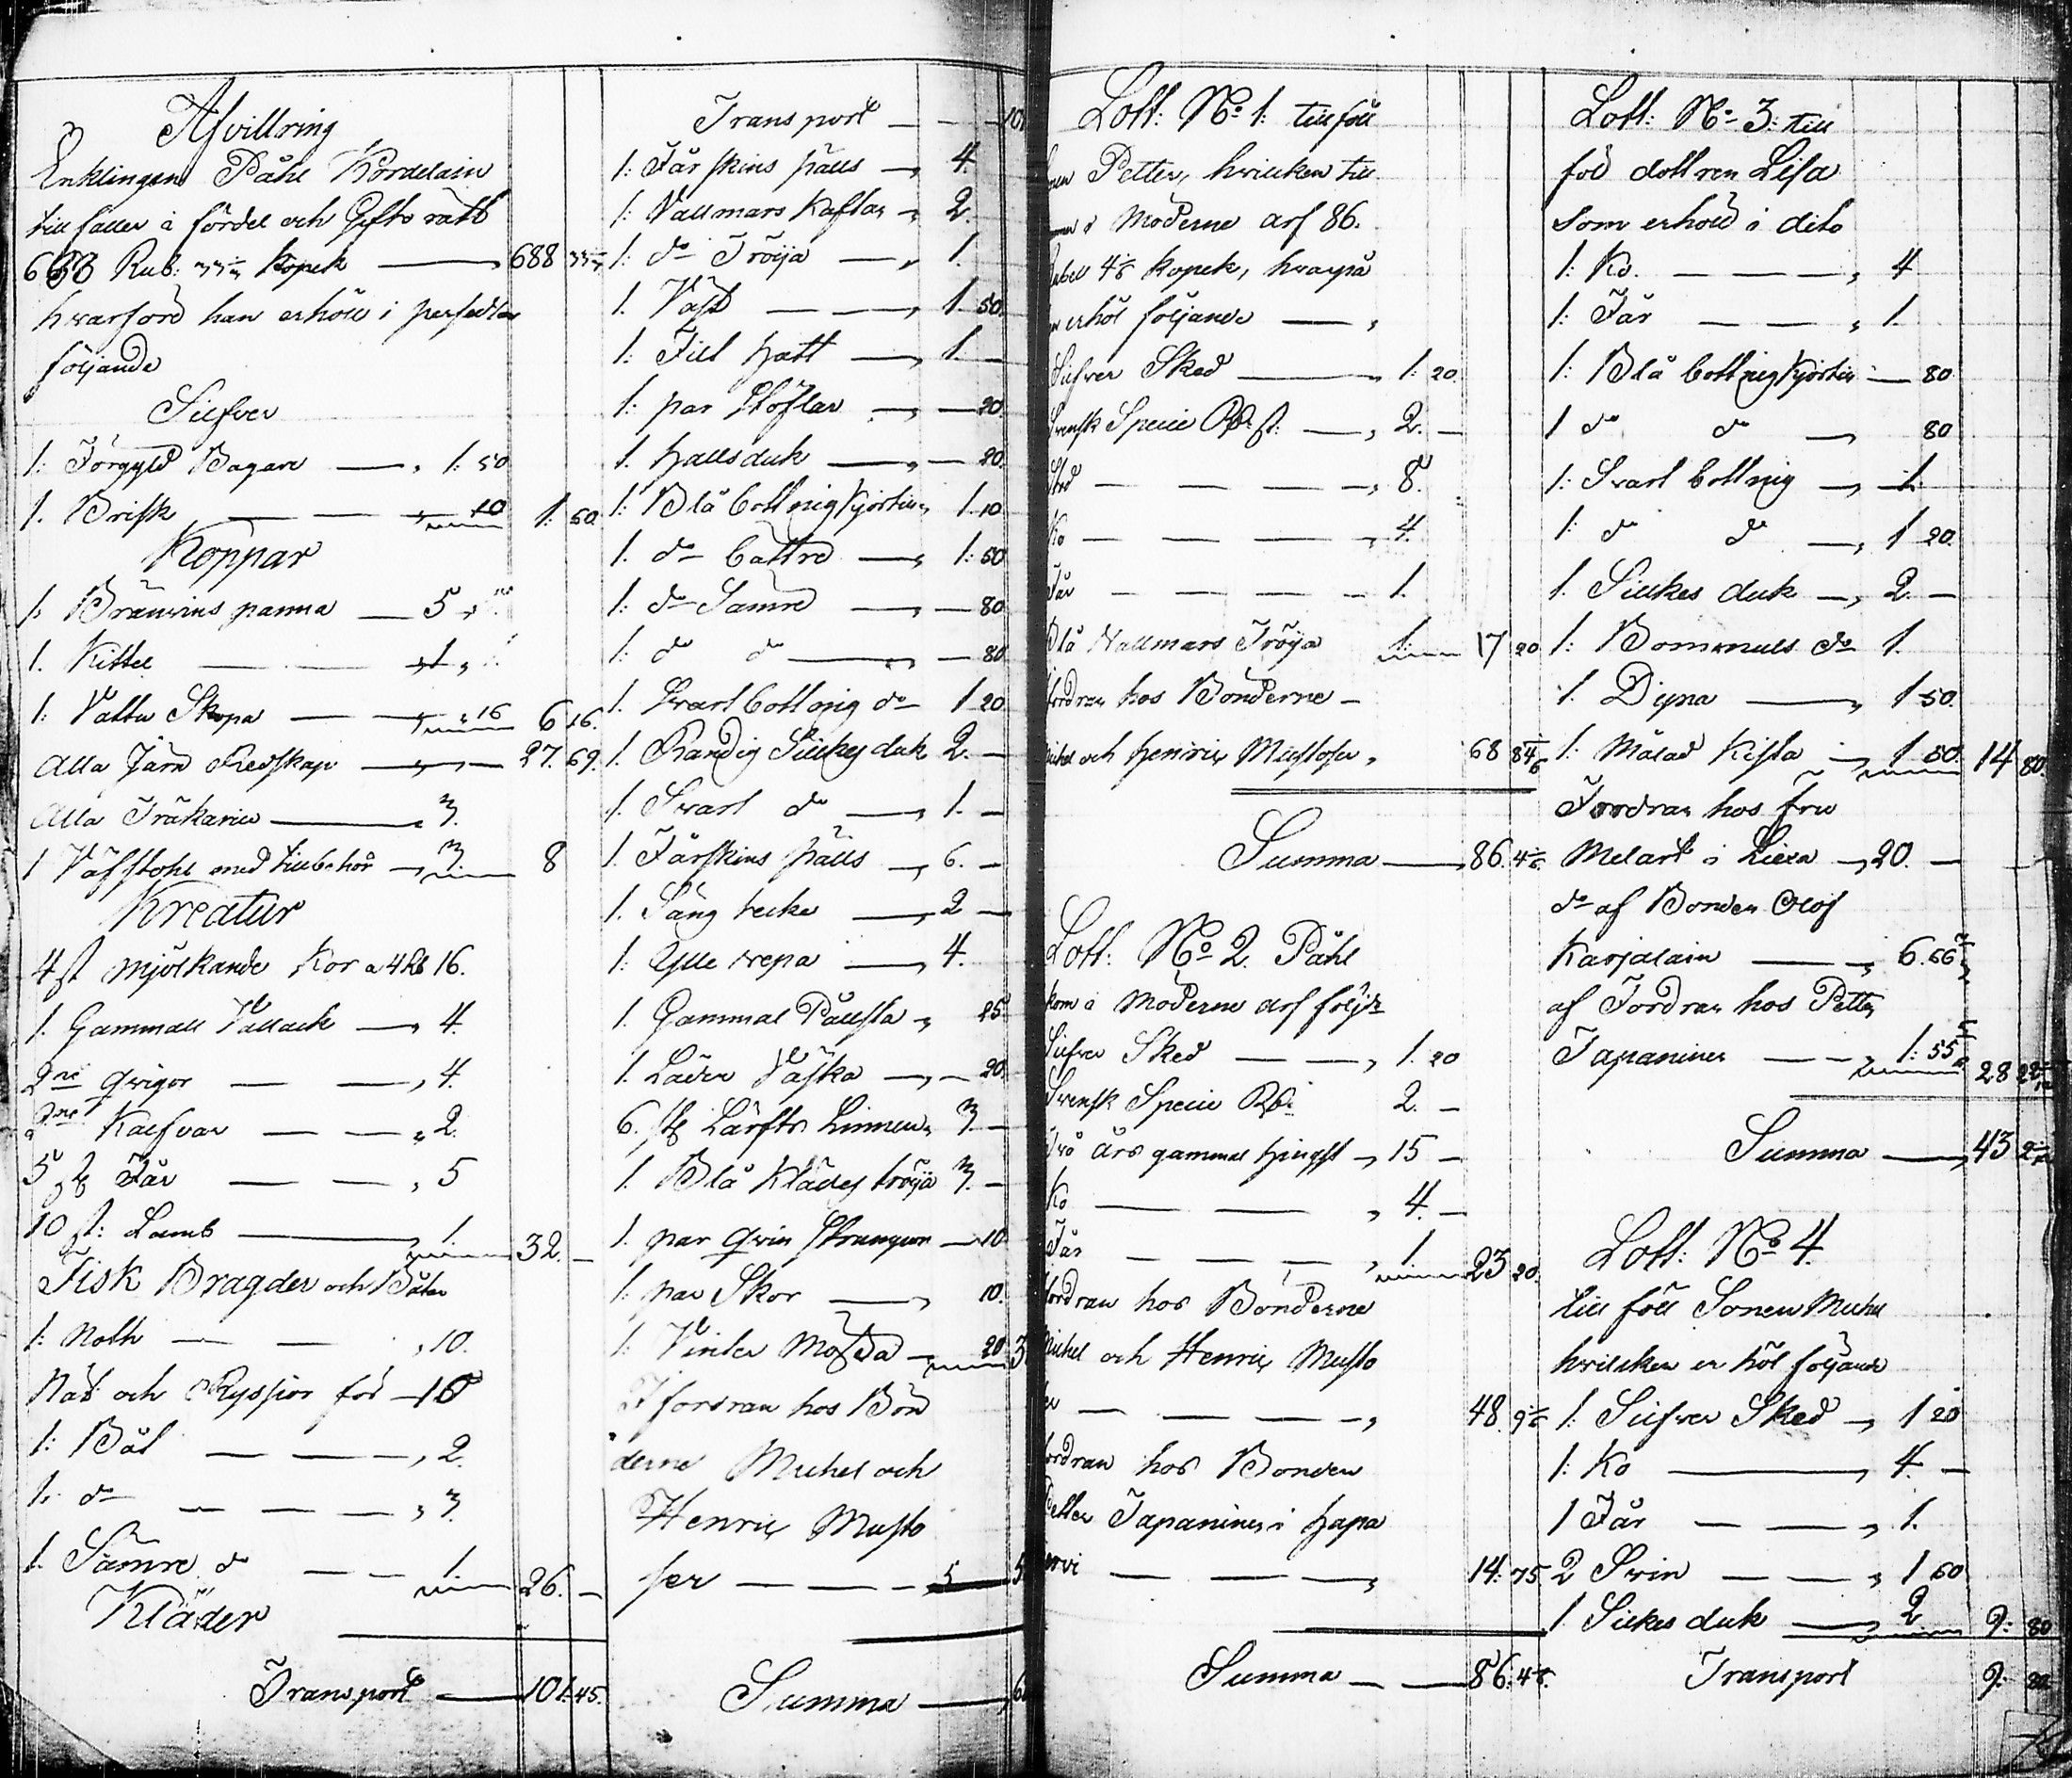 Afvittring
Enklingen Påhl Kordelain
tillfaller i fördel och Gifto rätt
688 Rub: 33⅓ Kopek — 688 33⅓
hvarföre han erhöll i persedlar
följande
Silfver
1: Förgyld Bagare — 1: 50
1. Brisk — 10 1: 60
Koppar
1. Bränvins panna — 5
1. Kittel — 1
1: Vattu Skopa — 16 6 16.
Alla Järn Redskap — 27. 69.
Alla Träkärill — 3.
1 Väfstohl med tillbehör — 3. 8
Kreatur
4 st mjölkande Kor a 4 Rb 16.
1. Gammall Vallack — 4.
2ne qvigor — 4.
2ne Kalfvar — 2.
5 st Får — 5
10 st: Lamb — 1. 32. —
Fisk Bragder och Båtar
1: Noth — 10.
Nät och Ryssior för — 10
1: Båt — 2.
1. do — 3.
1. Sämre do — 1. 26. —
Kläder
Transport — 101: 45.
Transport — 101
1: Fårskins Pälls — 4.
1: Vallmars Kaftan — 2.
1: do Tröija — 1.
1. Väst — 1. 50.
1: Filt Hatt — 1. —
1: par Stöflar — 20.
1. Hallsduk — 20.
1: Blå bottnig Kjortel 1. 10
1. do battre — 1: 50
1: do Sämre — 80
1: do do — 80
1. Svart bottnig do 1 20
1. Randig Silkes duk 2. —
1. Svart do — 1. —
1. Fårskins Pälls — 6. —
1. Säng täcke — 2 —
1: Ylle repa — 4.
1. Gammal Pällsta 25
1. Läder Väska — 20.
6. st Lärfts Linnen 3. —
1. Blå Klädes tröija 3. —
1. par qvin Strumpor — 10
1: par Skor — 10.
1: Vinter Mössa — 20 3
I fordran hos Bön
derne Michel och
Henric Musto
ser — 5
Summa — 6
Lott: No 1: tillföll
Petter, hvilcken till
Moderne arf 86.
4⅙ Kopek, hvarpå
erhöl följande —
Silfver Sked — 1: 20.
Svensk Specie Rb st: — 2. —
Sto — 8.
Ko — 4.
Får — 1.
Blå Vallmars Tröija 1: 17 20
Fordran hos Bönderne —
Michel och Henric Mustoser 68 84⅙
Summa — 86. 4⅙
Lott: No 2. Påhl
kom i Moderne arf följde
Silfver Sked — 1. 20
Svensk Specie Rb: 2. —
Två års gammal Hingst 15 —
Ko — 4. —
Får — 1. 23 20
Fordran hos Bönderne
Michel och Henric Musto
ser — 48. 9⅙
Fordran hos Bonden
Petter Tapaninen i Hapa
jervi — 14: 75
Summa — 86: 4⅙
Lott: No 3: till
föl dottren Lisa
Som erhöll i dito
1: Ko. — 4
1: Får — 1.
1: Blå bottnig Kjortel — 80
1 do do — 80
1: Svart bottnig — 1.
1: do do — 1 20.
1. Silkes duk — 2. —
1: Bommuls do 1.
1. Dyna — 1 50.
1: Målad Kista — 1 50. 14 80.
Fordran hos fru
Melart i Liexa — 20. —
do af Bonden Olof
Karjalain — 6. 66⅔
af Fordran hos Petter
Tapaninen — 1: 55 28 22
Summa — 43 2
Lott: No 4.
till föll Sonen Michel
hvilcken erhöl följande
1: Silfver Sked — 1 20
1: Ko — 4. —
1 Får — 1.
2 Svin — 1 60
1 Silkes duk — 2 9: 80
Transport 9: 80.